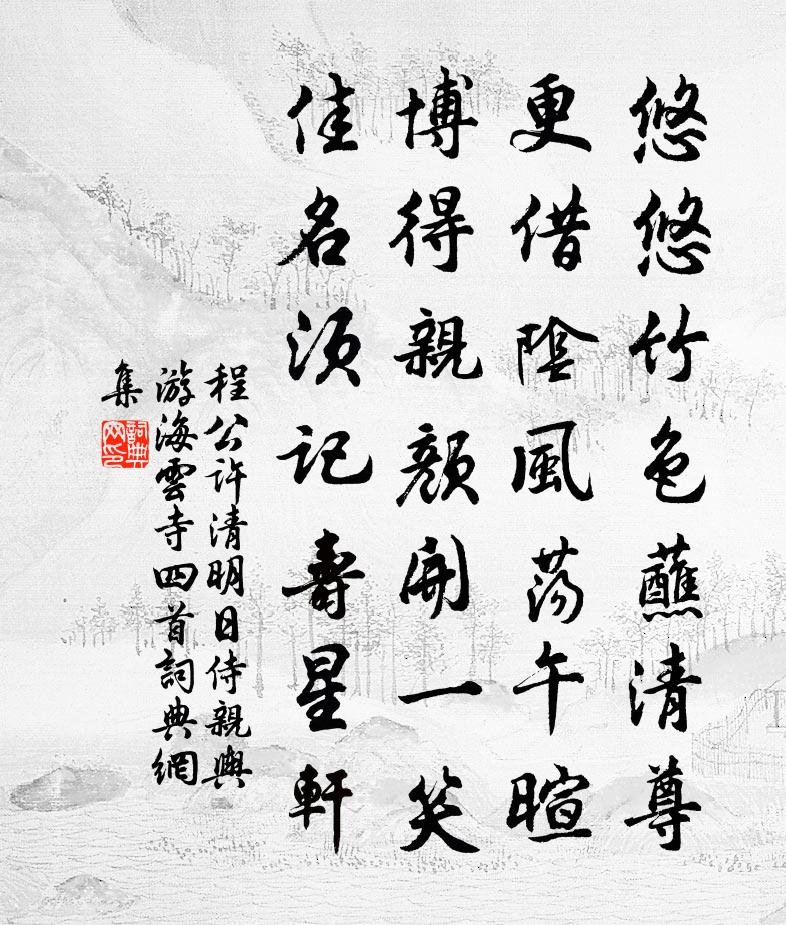 悠悠竹色蘸清尊
更借陰風荡午暄
博得親顏開一笑
佳名须记壽星軒
程公许清明日侍親輿
游海雲寺四首詞典網
集
詞典
网印